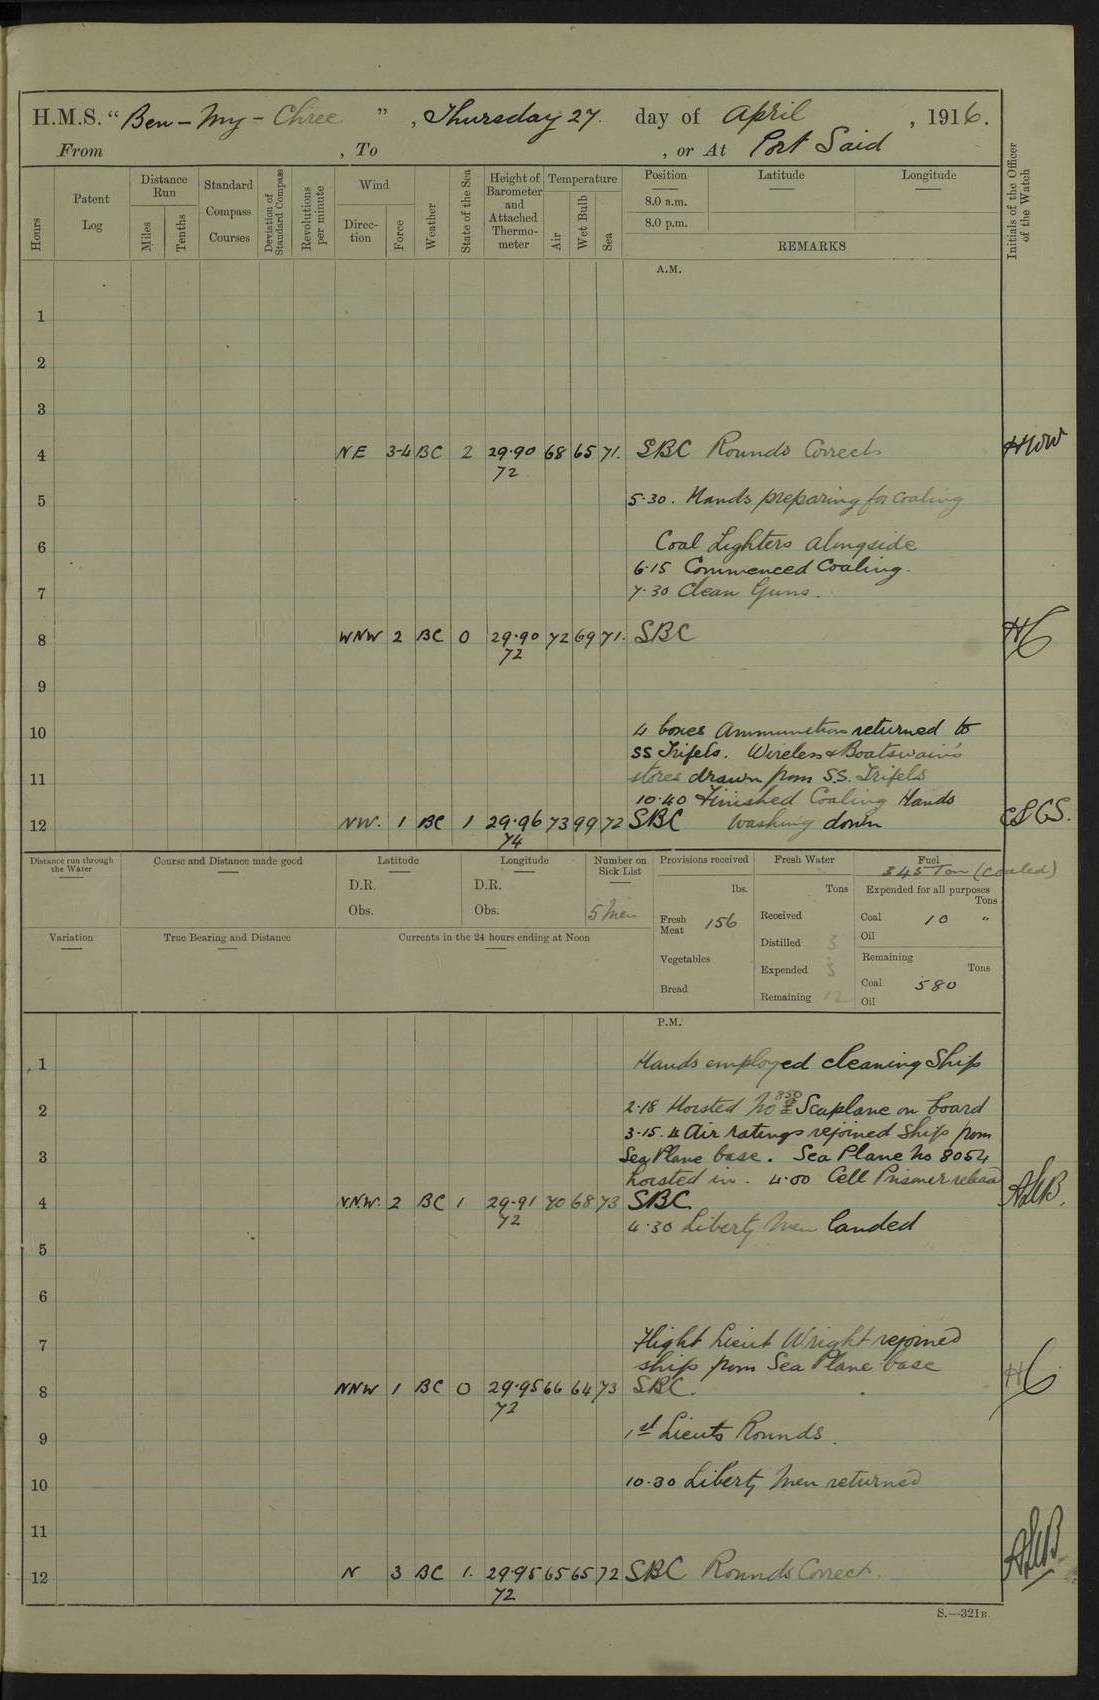 H.M.S. "Ben-My-Chree", Thursday 27. day of April, 1916.
From , To , or At Port Said
Hours
Patent Log
Distance Run
Miles
Tenths
Standard Compass Courses
Deviation of Standard Compass
Revolutions per minute
Wind
Direction
Force
Weather
State of the Sea
Height of Barometer and Attached Thermometer
Temperature
Air
Wet Bulb
Sea
Position
8.0 a.m.
8.0 p.m.
Latitude
Longitude
REMARKS
Initials of the Officer of the Watch
A.M.
1
2
3
4 NE 3-4 BC 2 29.90 68 65 71. SBC Rounds Correct
72
5 5.30. Hands preparing for coaling
6 Coal Lighters alongside
6.15 Commenced Coaling.
7 7.30 Clean Guns.
8 WNW 2 BC 0 29.90 72 69 71. SBC
72
9
10 4 boxes Ammunition returned to
SS Trifels. Wireless & Boatswain's
11 stores drawn from S.S. Trifels
10.40 Finished Coaling Hands
12 NW. 1 BC 1 29.96 73 99 72 SBC Washing down
74
Distance run through the Water
Course and Distance made good
Latitude
D.R.
Obs.
Longitude
D.R.
Obs.
Number on Sick List
5 Men
Provisions received
lbs.
Fresh Meat 156
Vegetables
Bread
Fresh Water
Tons
Received
Distilled 3
Expended 3
Remaining 12
Fuel
345 Ton (Coaled)
Expended for all purposes
Tons
Coal 10 "
Oil
Remaining
Tons
Coal 580
Oil
Variation
True Bearing and Distance
Currents in the 24 hours ending at Noon
P.M.
1 Hands employed cleaning Ship
2 2.18 Hoisted No 850 Seaplane on board
3.15. 4 Air ratings rejoined Ship from
3 Sea Plane base. Sea Plane No 8054
hoisted in. 4.00 Cell Prisoner released
4 N.N.W. 2 BC 1 29.91 70 68 73 SBC
72
4.30 Liberty Men landed
5
6
7 Flight Lieut Wright rejoined
ship from Sea Plane base
8 NNW 1 BC 0 29.95 66 64 73 SBC.
72
9 1st Lieuts Rounds.
10 10.30 Liberty Men returned
11
12 N 3 BC 1. 29.95 65 65 72 SBC Rounds Correct.
72
S.—321B.